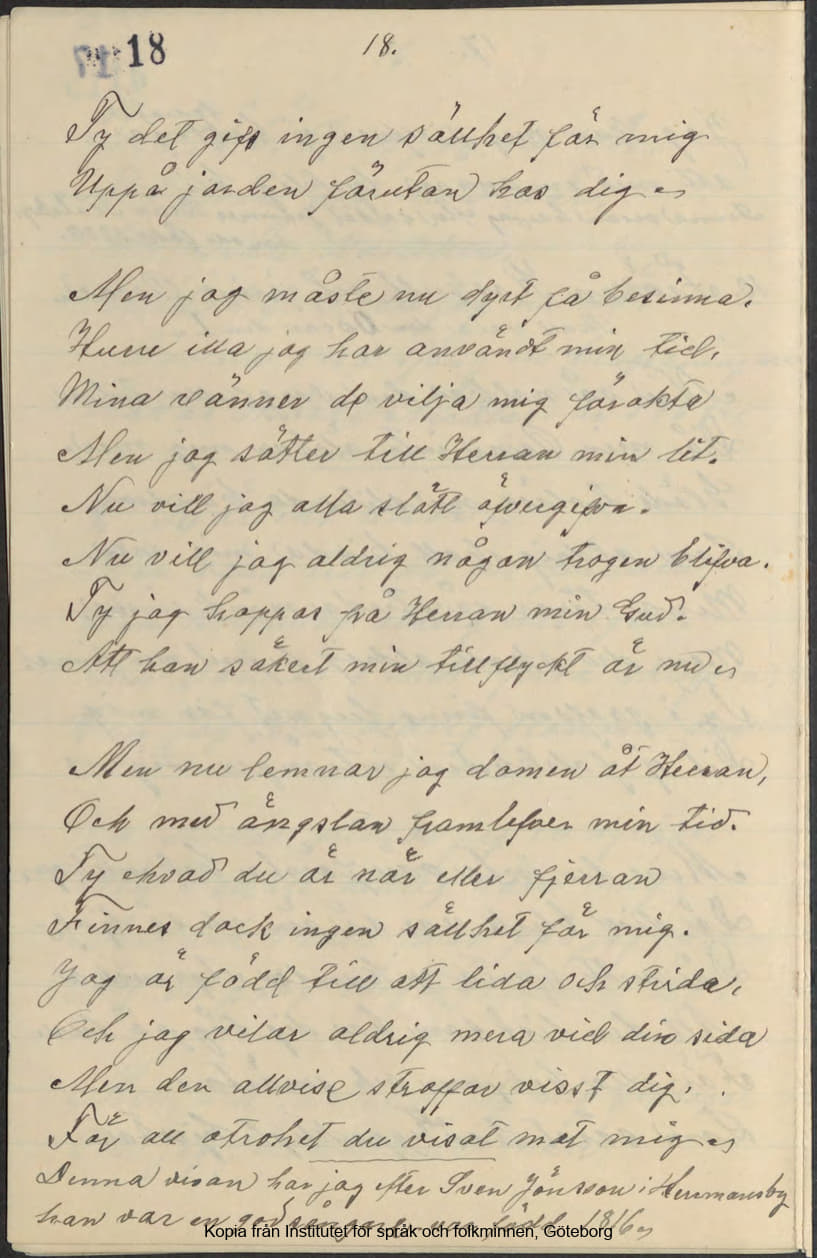 18
18.
Ty det gifs ingen sällhet för mig
Uppå jorden förutan hos dig
Men jag måste nu dyrt få besinna.
Huru illa jag har användt min tid,
Mina vänner de vilja mig förakta
Men jag sätter till Herran min lit.
Nu vill jag alla slätt öfvergifva.
Nu vill jag aldrig någon trogen blifva.
Ty jag hoppas på Herran min Gud.
Att han säkert min tillflyckt är nu
Men nu lemnar jag domen åt Herran,
Och med ängslan framlefver min tid.
Ty ehvad du är når eller fjerran
Finnes dock ingen sällhet för mig.
Jag är född till att lida och strida,
Och jag vilar aldrig mera vid din sida
Men den allvise straffar visst dig.
För all otrohet du visat mot mig
Denna visan har jag efter Sven Jönsson i Hermansby
han var en god sångare var född 1816
Kopia från Institutet för språk och folkminnen, Göteborg